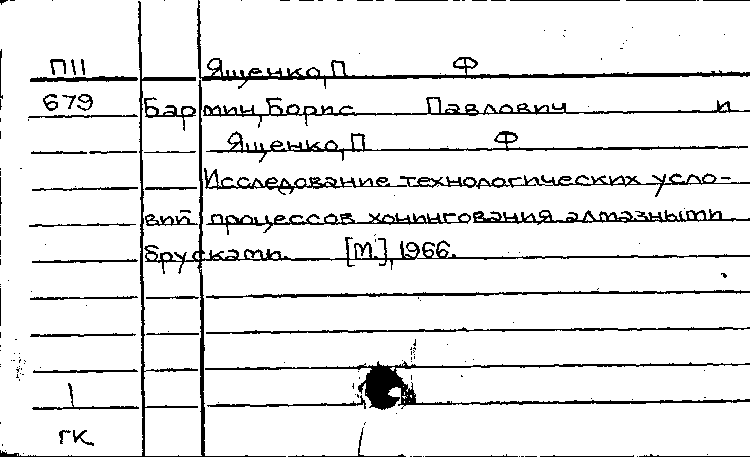 П11 Ященко, П Ф
679 Бармин, Борис Павлович и
Ященко, П Ф
Исследование технологических усло-
вий процессов хонингования алмазными
брусками. [М.], 1966.
1
ГК